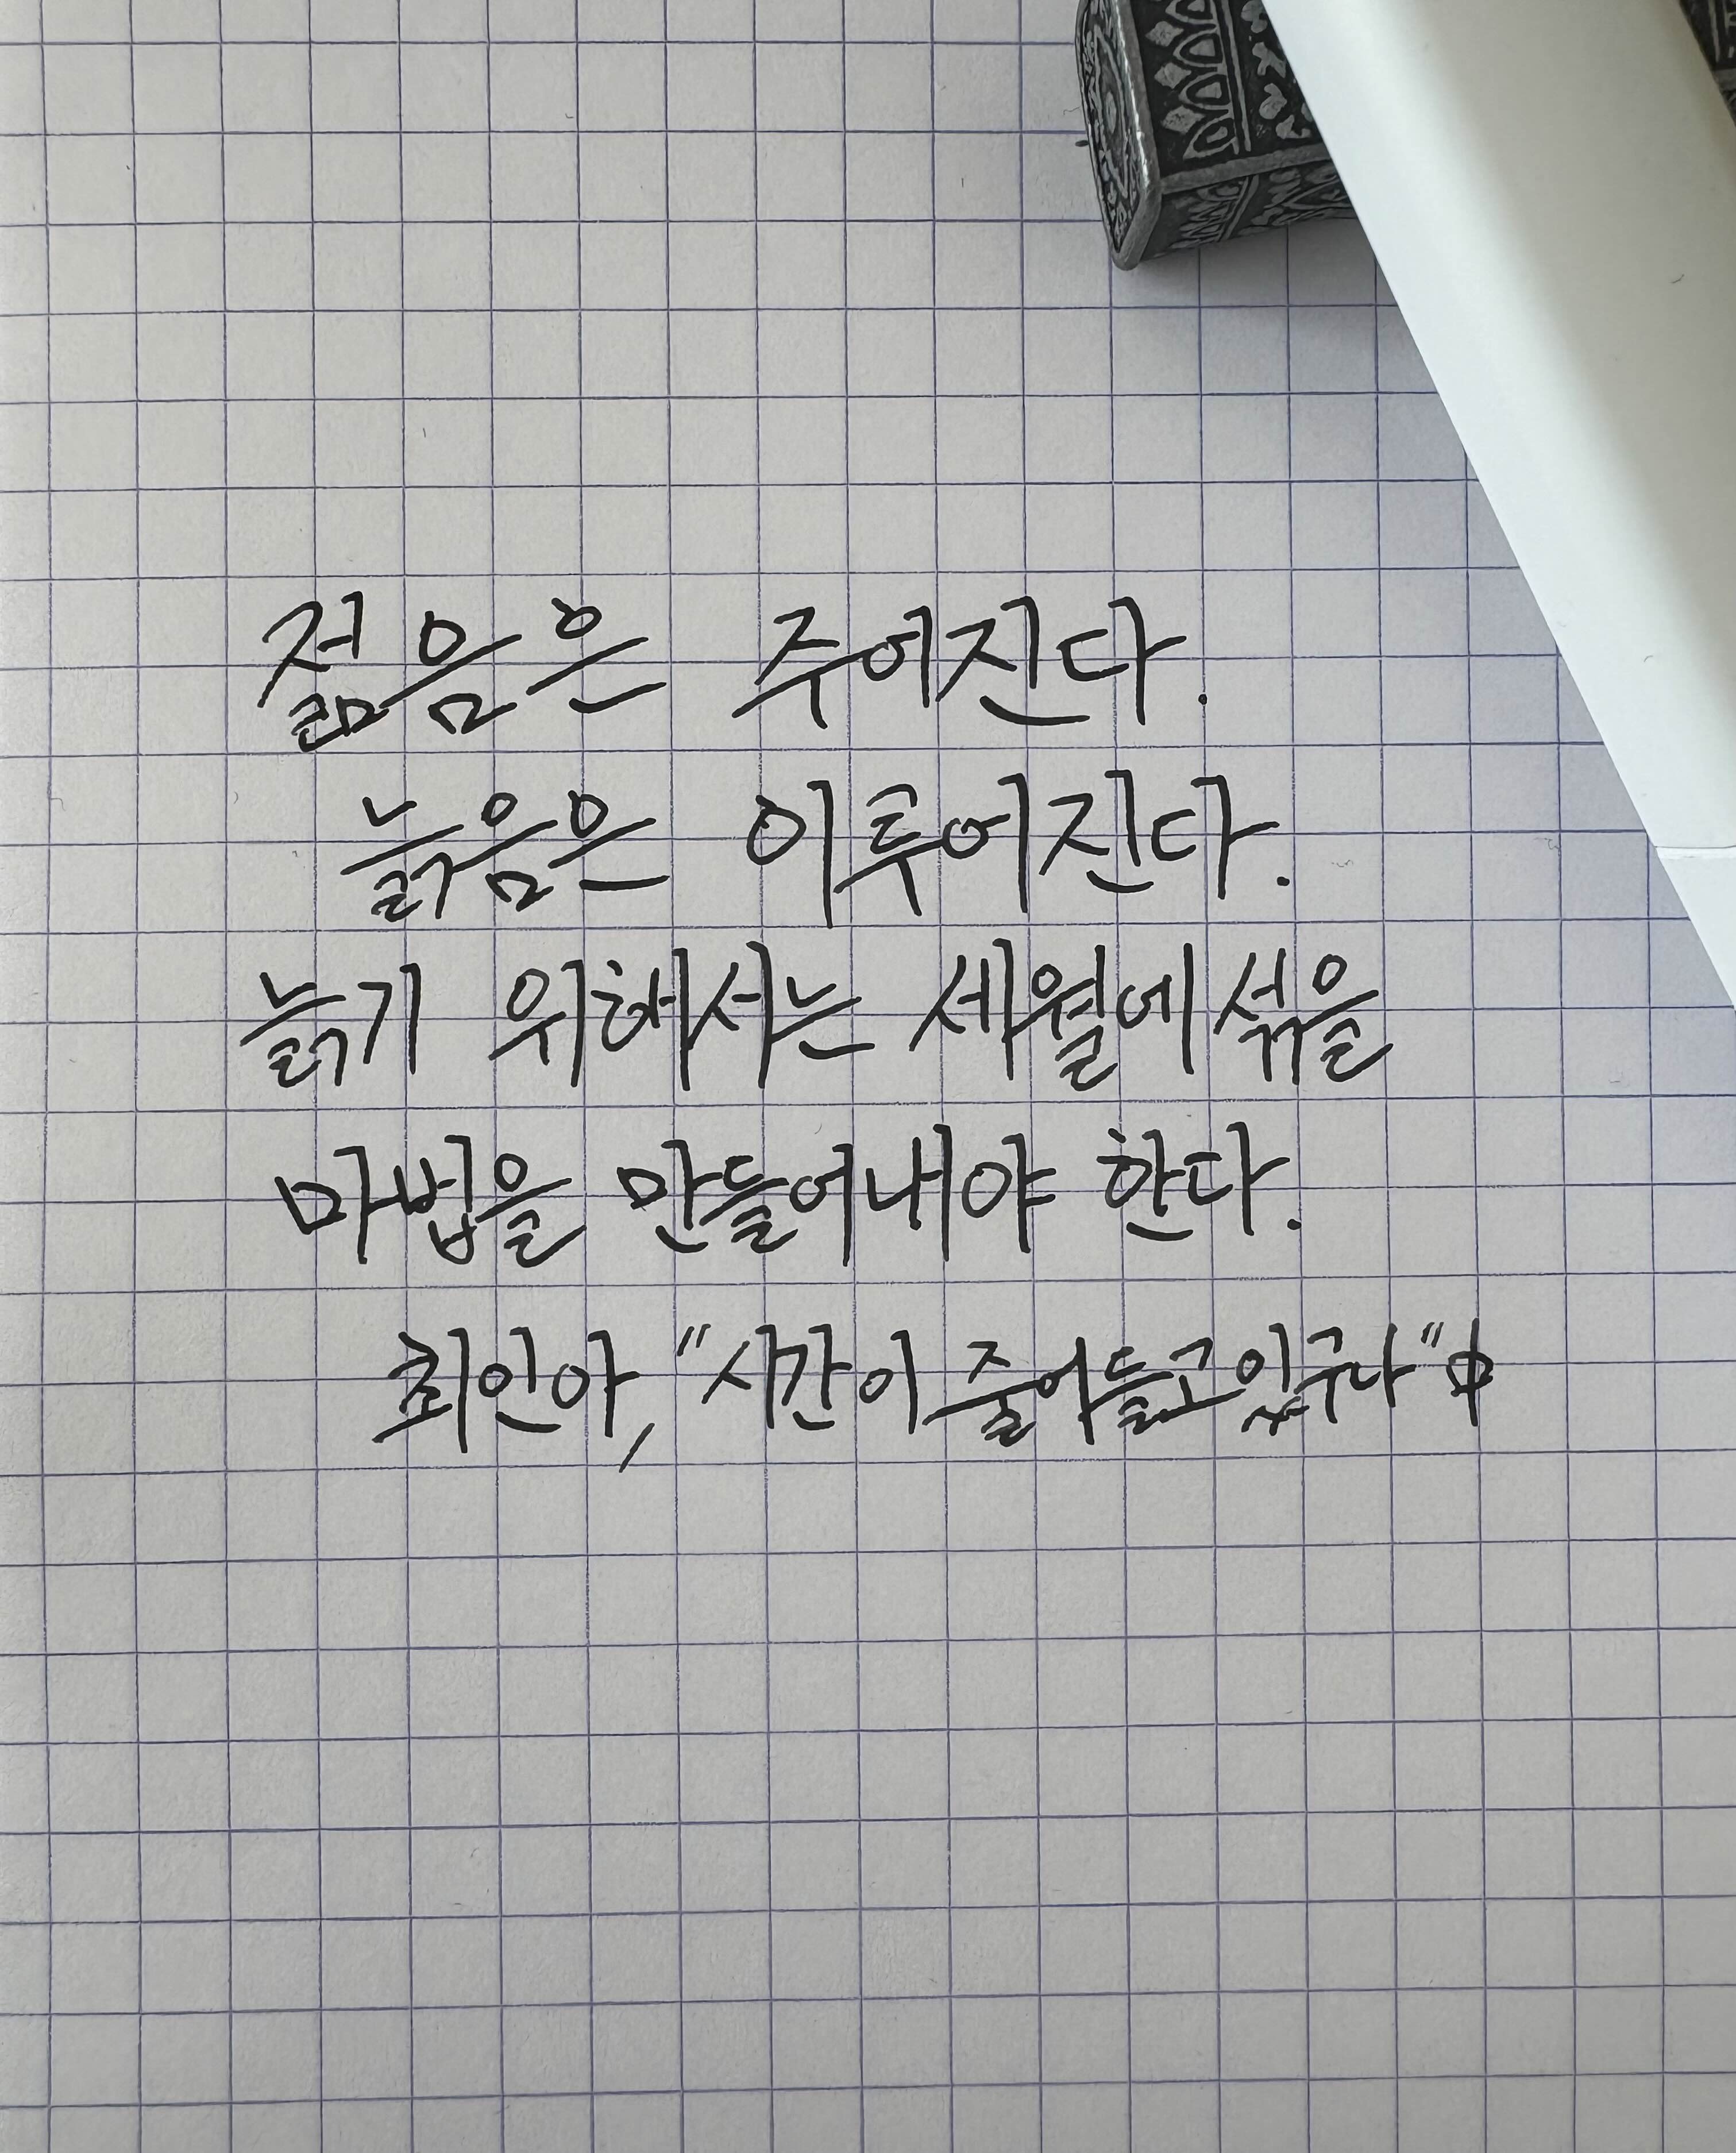 젊음은 주어진다.
늙음은 이루어진다.
늙기 위해서는 세월에 섞을
마법을 만들어내야 한다.
최인아, "시간이 줄어들고있구나" 中